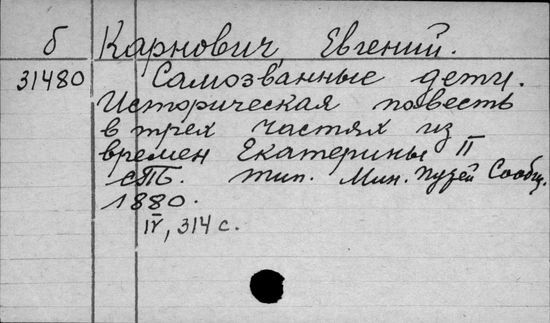 б Карнович, Евгений.
31480 Самозванные дети.
Историческая повесть
в трех частях из
времен Екатерины II
СПБ. тип. Мин. Пузей Сообщ.
1880.
IV, 314 с.